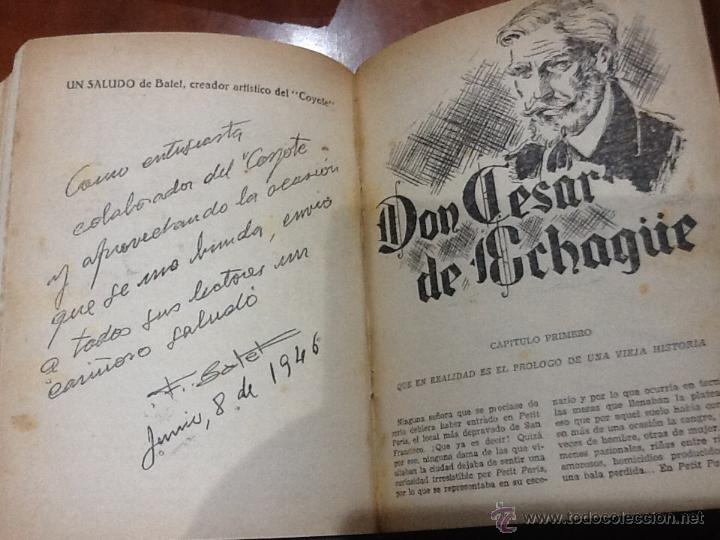 UN SALUDO de Batet, creador artístico del "Coyote"
Como entusiasta
colaborador del "Coyote
y aprovechando la ocasión
que se me brinda, envio
a todos sus lectores un
cariñoso saludo
F. Batet
Junio, 8 de 1946
Don Cesar
de Echagüe
CAPITULO PRIMERO
QUE EN REALIDAD ES EL PROLOGO DE UNA VIEJA HISTORIA
Ninguna señora que se preciase de
serlo debiera haber entrado en Petit
Paris, el local más depravado de San
Francisco. ¡Que ya es decir! Quizá
por eso, ninguna dama de las que vi-
sitaban la ciudad dejaba de sentir una
curiosidad irresistible por Petit Paris,
por lo que se representaba en su esce-
nario y por lo que ocurría en torno
las mesas que llenaban la platea
eso que por aquel suelo había co
en más de una ocasión la sangre,
veces de hombre, otras de mujer.
menes pasionales, riñas entre ri
amorosos, homicidios producidos
una bala perdida... En Petit P
www.todocoleccion.net